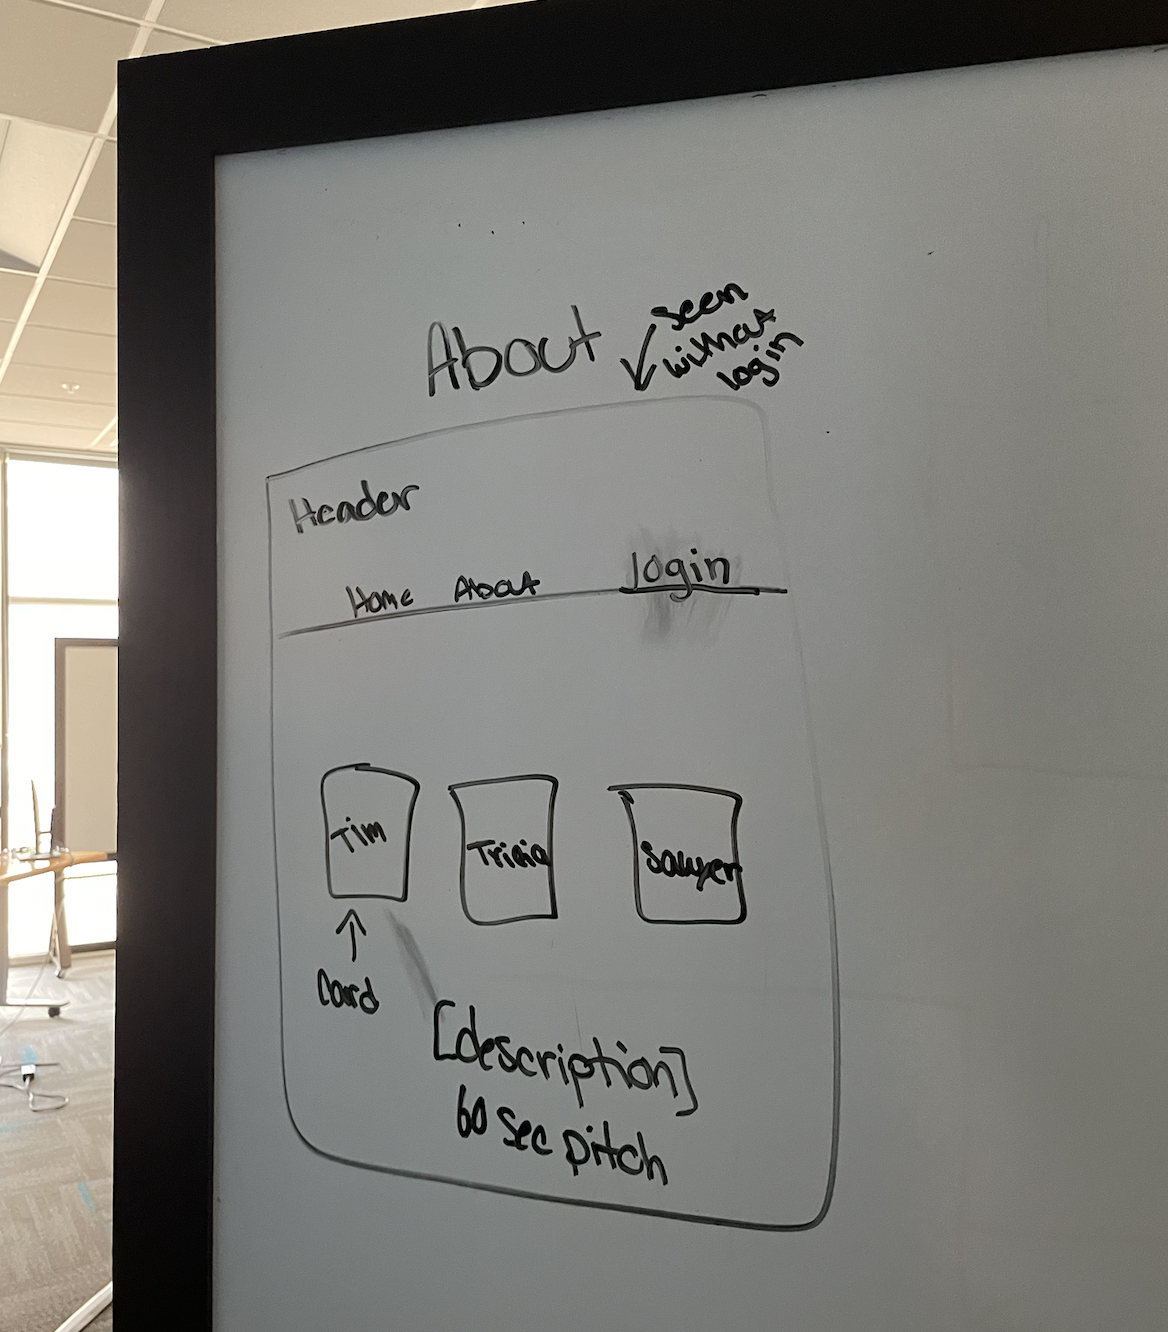 About
seen
without
login
Header
Home About login
Tim Tricia Sawyer
Card
[description]
60 sec pitch